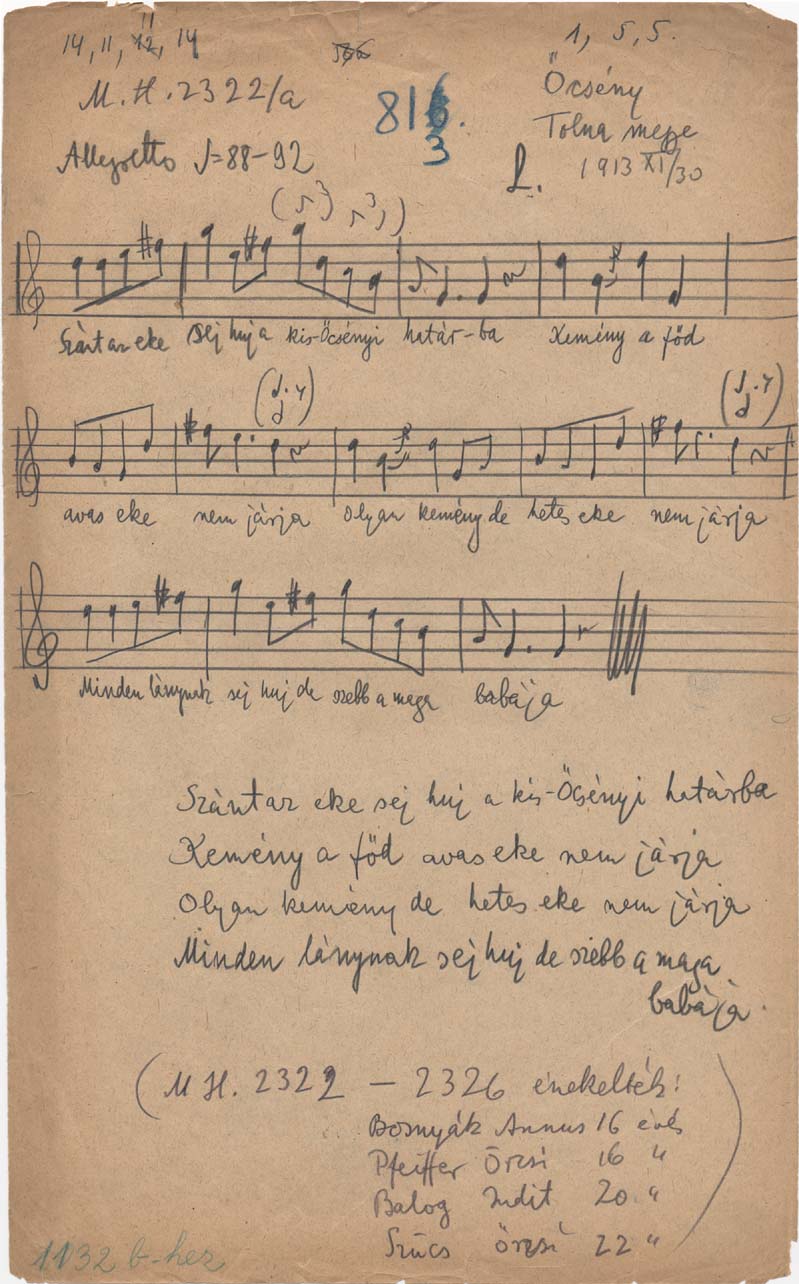 14, 11, 12, 14
11
1, 5, 5.
M. H. 2322/a
816.
3
Őcsény
Tolna megye
Allegretto ♩=88-92
L.
1913 XI/30
Szánt az eke sej huj a kis-Őcsényi határ-ba Kemény a főd
avas eke nem járja Olyan kemény de hetes eke nem járja
Minden lánynak sej huj de szebb a maga babája
Szánt az eke sej huj a kis-Őcsényi határba
Kemény a főd avas eke nem járja
Olyan kemény de hetes eke nem járja
Minden lánynak sej huj de szebb a maga
babája.
(M H. 2322 — 2326 énekelték:
Bosnyák Annus 16 éves
Pfeiffer Örzsi 16 "
Balog Judit 20 "
Szűcs Örzsi 22 ")
1132 b-hez